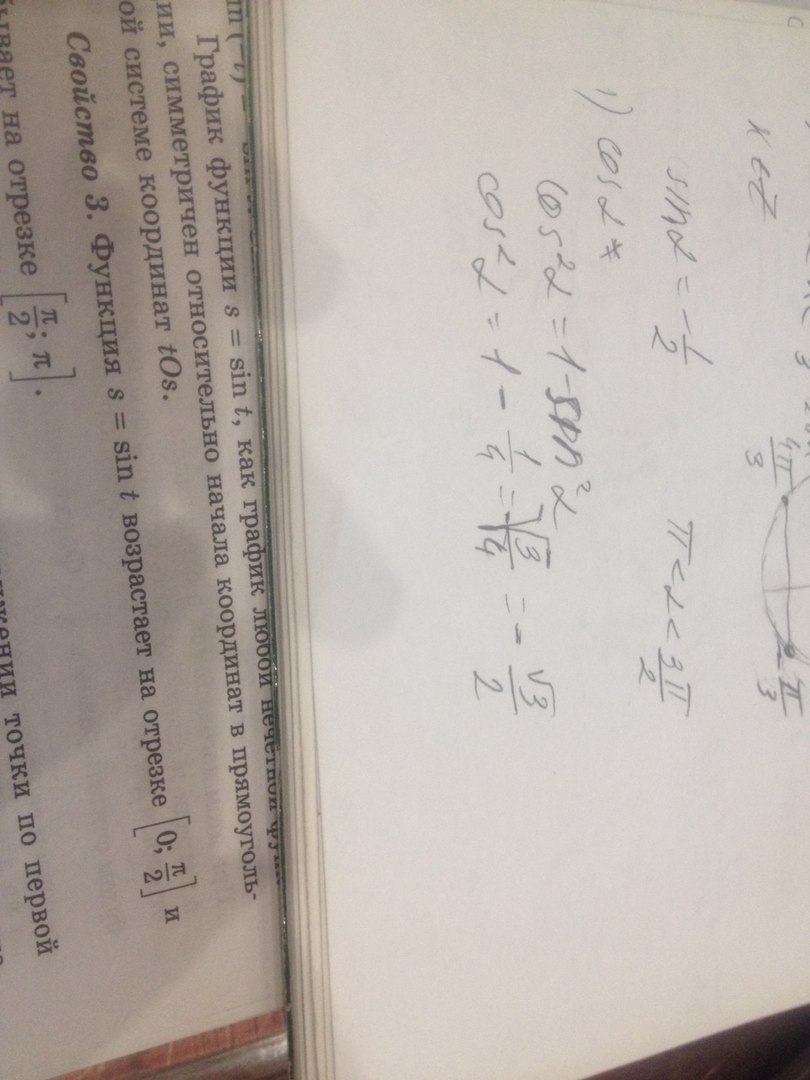 k ∈ Z
4π/3
π/3
sin α = -1/2 π < α < 3π/2
1) cos α *
cos²α = 1 - sin²α
cos²α = 1 - 1/4 = -√3/4 = -√3/2
График функции s = sin t, как график любой нечётной функ-
ии, симметричен относительно начала координат в прямоуголь-
ой системе координат tOs.
Свойство 3. Функция s = sin t возрастает на отрезке [0; π/2] и
бывает на отрезке [π/2; π].
точки по первой